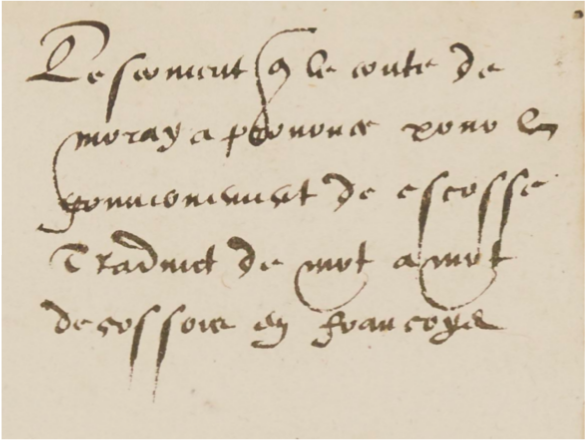 Le serment q le conte de
moray a prononce pour le
gouvernement de escosse
Traduict de mot a mot
descossois en francoys